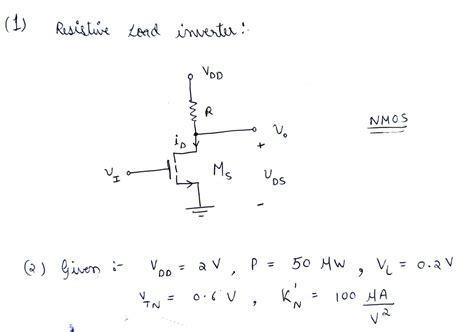 (1) Resistive Load inverter :-
V_DD
R
NMOS
i_D
V_o
+
V_I
M_S
V_DS
-
(2) Given :- V_DD = 2 V , P = 50 MW , V_L = 0.2 V
V_TN = 0.6 V , K'_N = 100 μA/V²